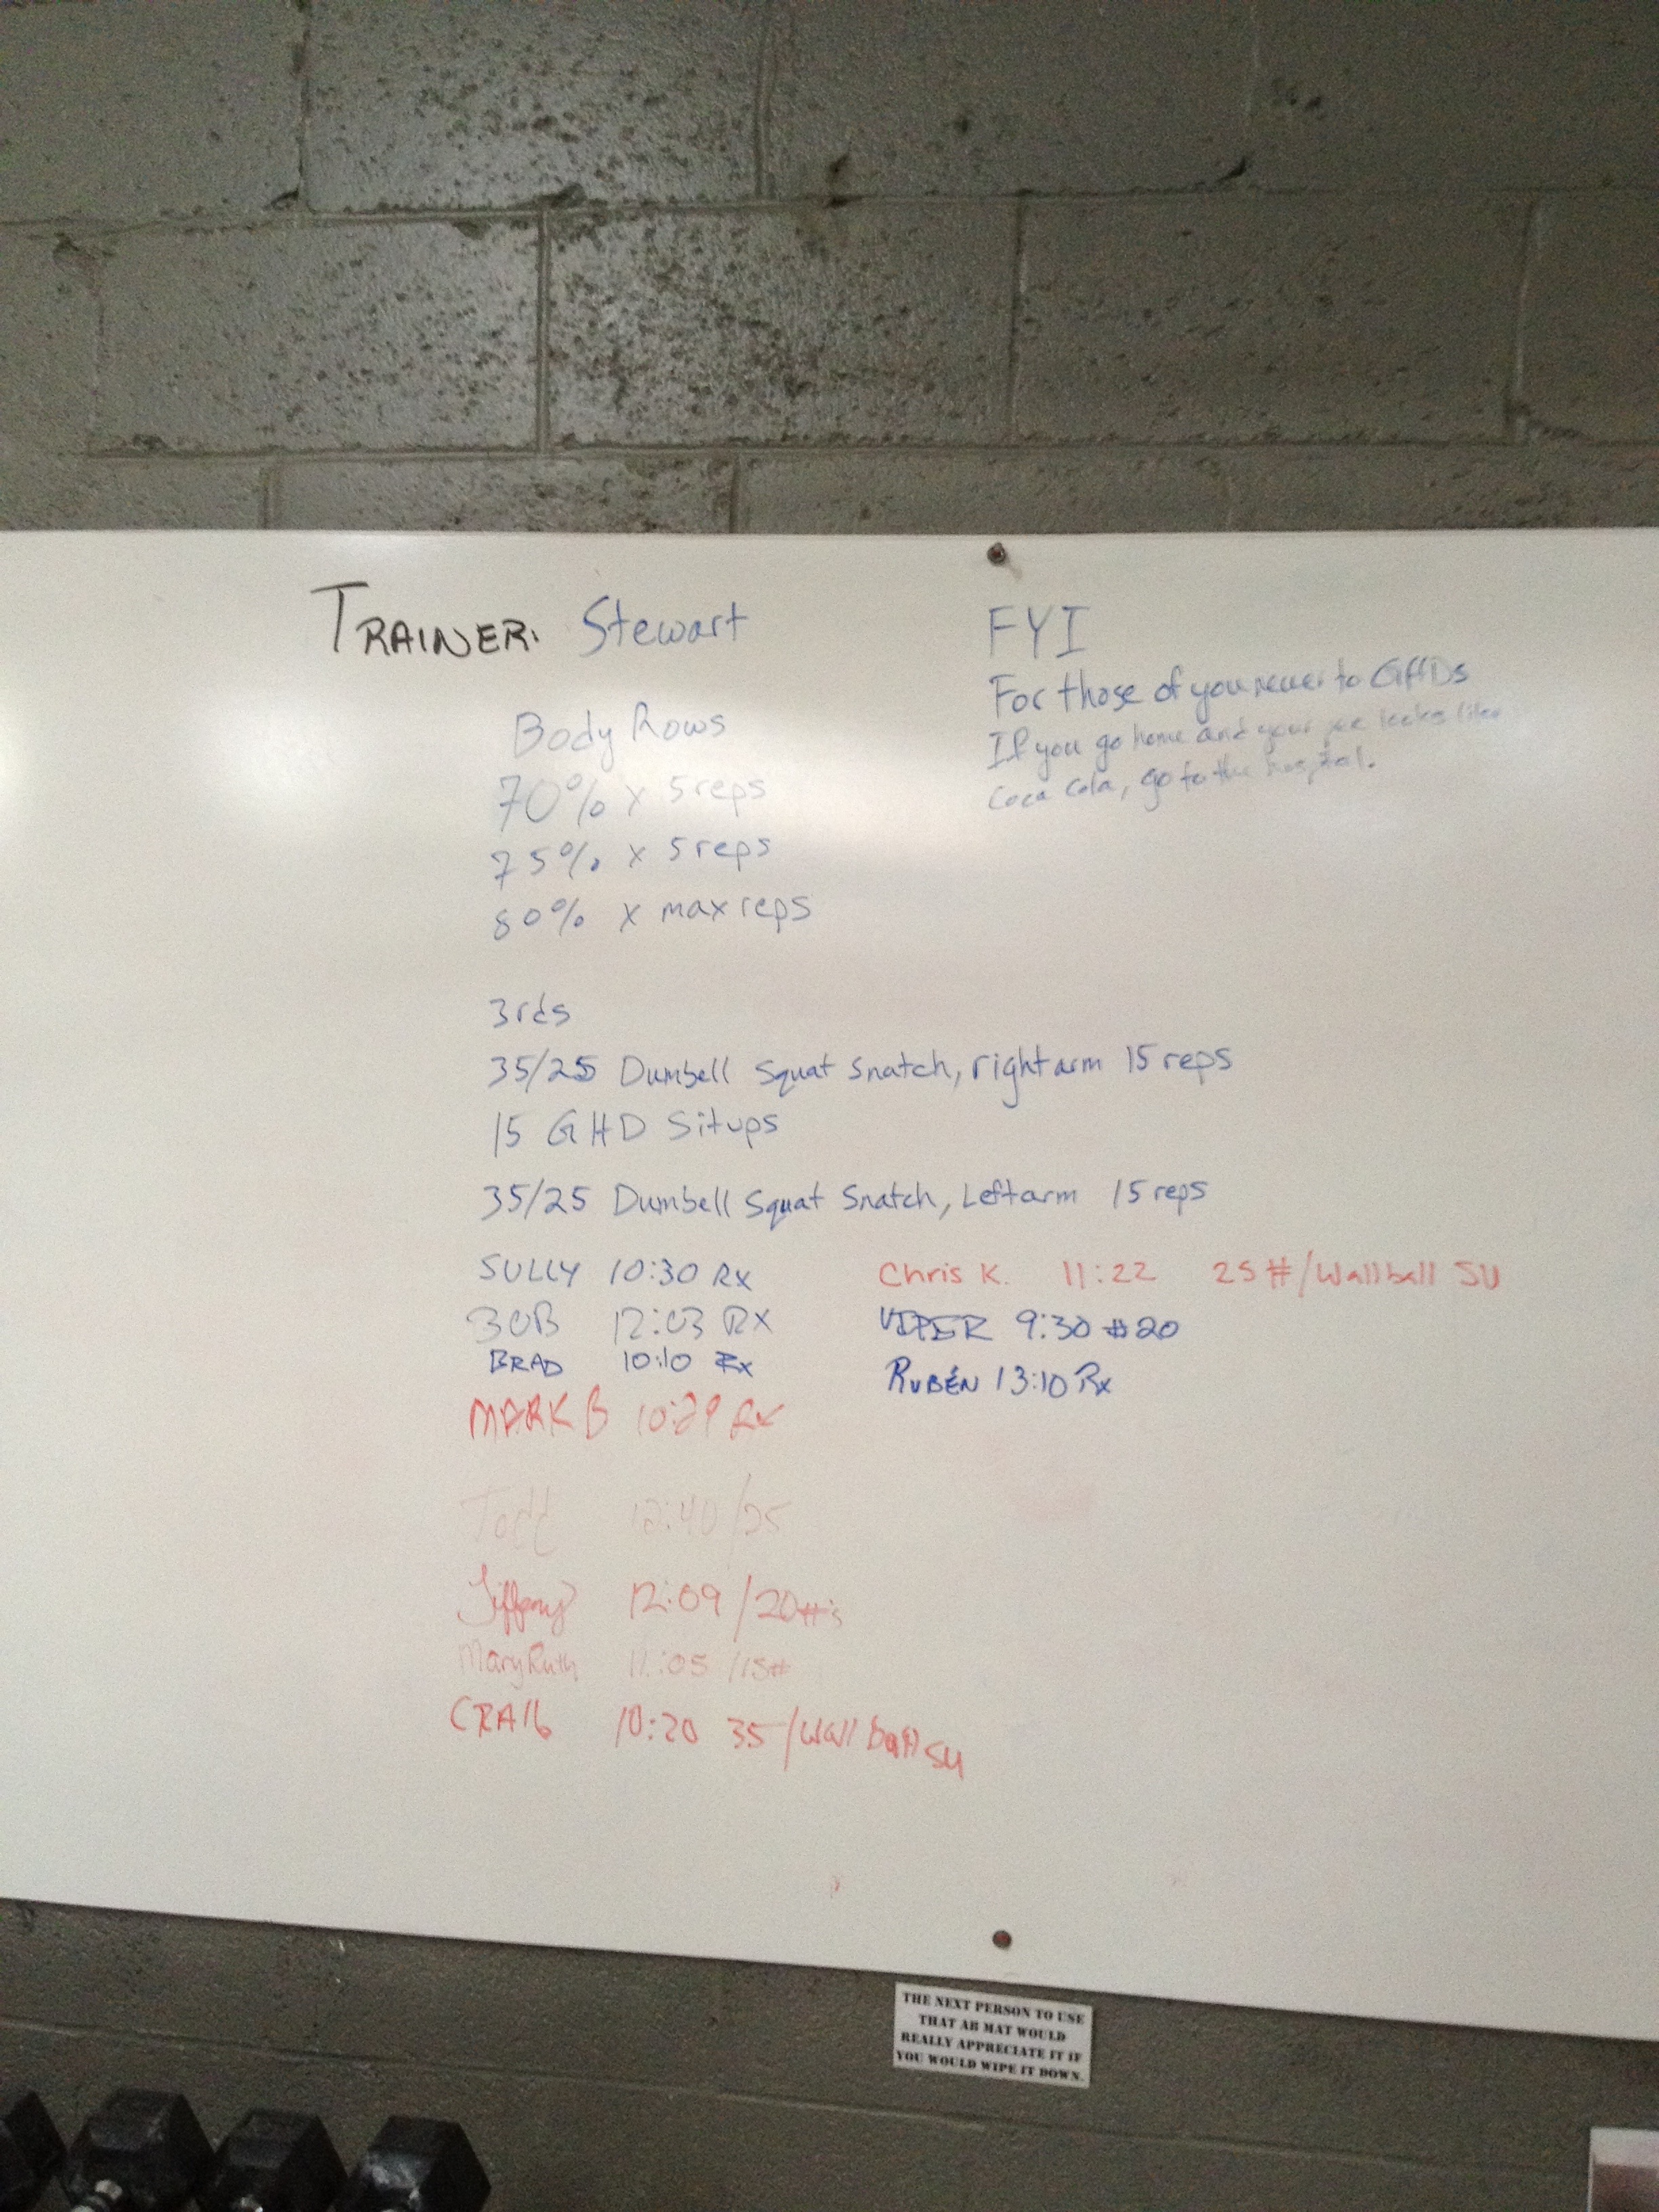 TRAINER: Stewart
Body Rows
70% x 5 reps
75% x 5 reps
80% x max reps
FYI
For those of you newer to GHDs
If you go home and your pee looks like
Coca Cola, go to the hospital.
3rds
35/25 Dumbell Squat Snatch, right arm 15 reps
15 GHD Situps
35/25 Dumbell Squat Snatch, Left arm 15 reps
SULLY 10:30 Rx
BOB 12:03 Rx
BRAD 10:10 Rx
MARK B 10:29 Rx
Todd 12:40/25
Tiffany 12:09/20#'s
MaryRuth 11:05 /15#
CRAIG 10:20 35/Wall ball SU
Chris K. 11:22 25#/Wallball SU
VIPER 9:30 #20
RUBÉN 13:10 Rx
THE NEXT PERSON TO USE
THAT AB MAT WOULD
REALLY APPRECIATE IT IF
YOU WOULD WIPE IT DOWN.